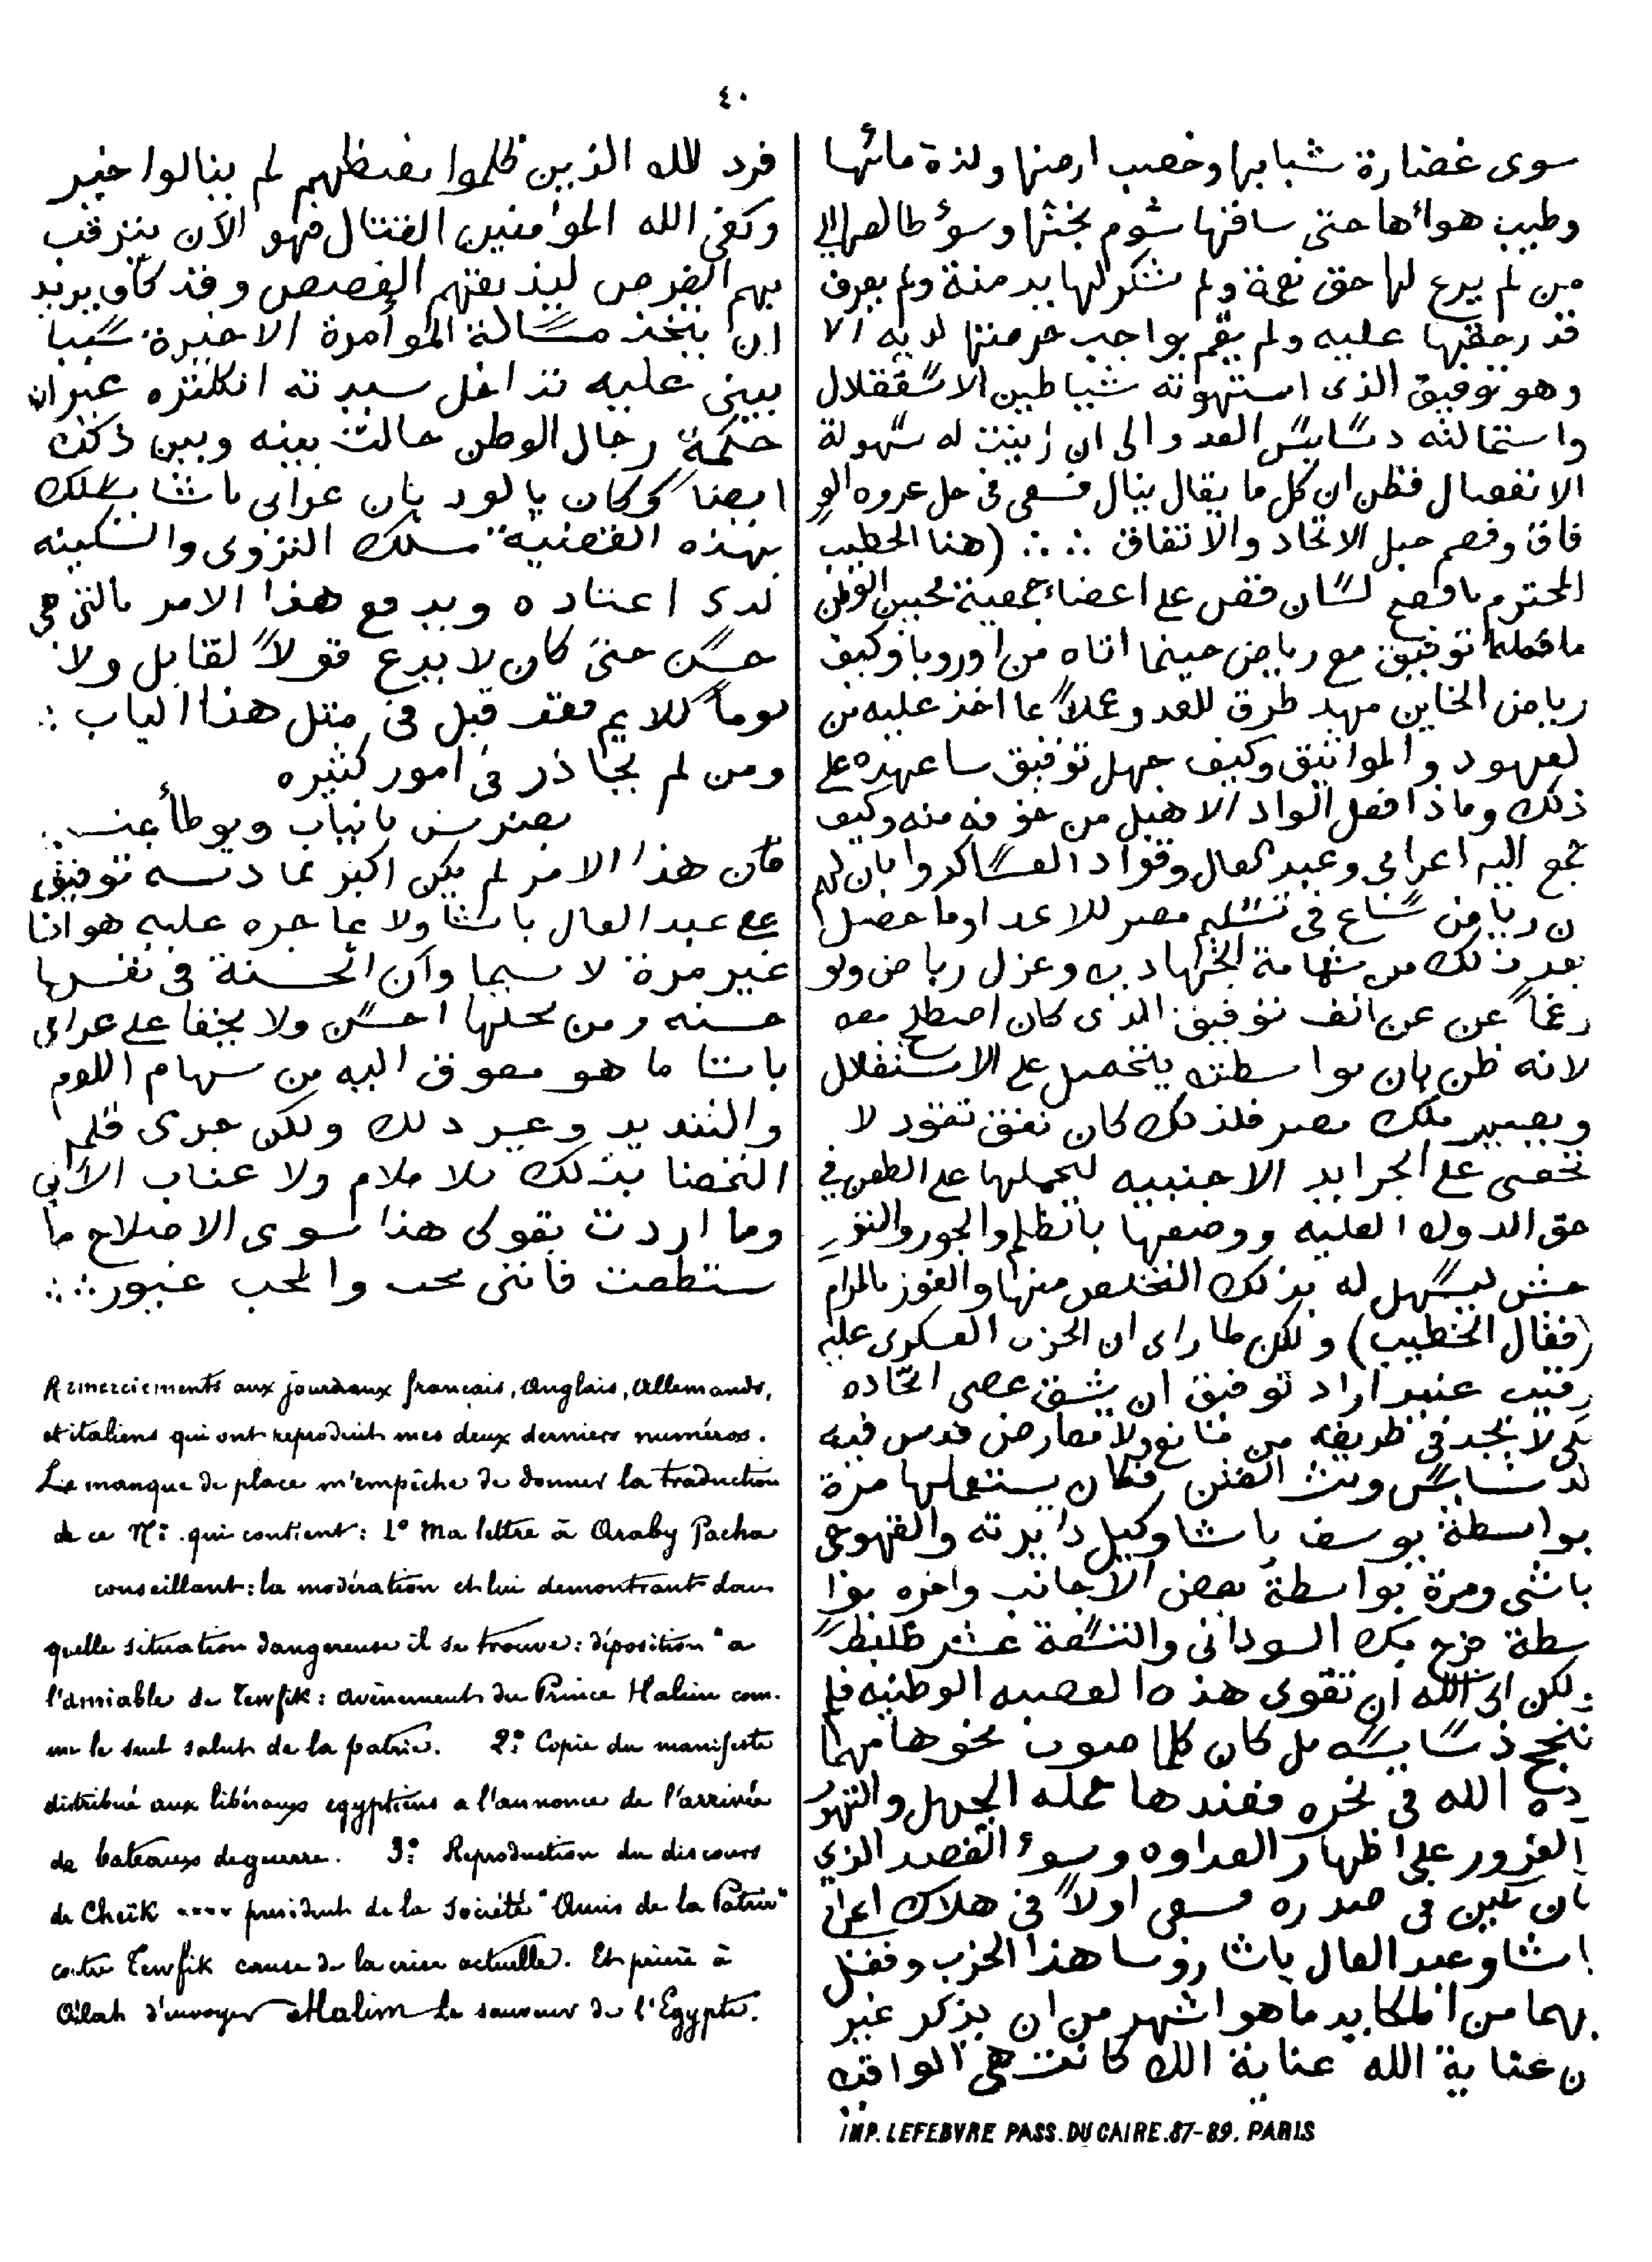 ٤٠
سوى غضارة شبابها وخصب ارضها ولذة مائها
وطيب هوائها حتى ساقها شوم بختها وسوء طالعها الى
من لم يرع لها حق نعمة ولم شكر لها يد منة ولم يعرف
قدر حقها عليه ولم يقم بواجب حرمتها لديه الا
وهو توفيق الذى استهوته شياطين الاستقلال
واستمالته دسايس العدو الى ان زينت له سهولة
الانفصال فظن ان كل ما يقال ينال فسعى فى حل عروه الو
فاق وفصم حبل الاتحاد والاتفاق ∴ (هنا الخطيب
المحترم بافصح لسان قص على اعضاء جمعية محبين الوطن
ما فعله توفيق مع رياض حينما اتاه من اوروبا وكيف
رياض الخاين مهد طرق للعدو عملاً بما اخذ عليه من
لعهود والمواثيق وكيف جهل توفيق ساعهده على
ذلك وماذا فعل الواد الاهبل من خوفه منه وكيف
جمع اليه اعرابى وعبد العال وقواد العساكر وابان لهم
ن رياض ساع فى تسليم مصر للاعدا وما حصل
بعد ذلك من شهامة الجهاديه وعزل رياض ونو
رغماً عن عن انف توفيق الذى كان اصطلح معه
لانه ظن بان بواسطته يتحصل على الاستقلال
ويصير ملك مصر فلذلك كان نفق نقود لا
تحصى على الجرايد الاجنبيه ليحملها على الطعن فى
حق الدوله العليه ووصفها بالظلم والجور والنزر
حش ليسهل له بذلك التخلص منها والفوز بالمرام
(فقال الخطيب) ولكن لما راى ان الحزب العسكرى عليه
رقيب عنيد اراد توفيق ان يشق عصى اتحاده
لكى لا يجد فى طريقه من مانع ولا معارض فدس فيه
لدسايس وبث الفتن فكان يستعملها مرة
بواسطة يوسف باشا وكيل دايرته والقهوجى
باشى ومرة بواسطة بعض الاجانب واخره بوا
سطة فرج بك السودانى والتسعة عشر ظابطاً
ولكن ابى الله ان تقوى هذه العصبه الوطنيه فلم
تنجح دسايسه بل كان كلما صوب نحوها سهما
رده الله فى نحره فعندها حمله الجهل والتهور
الغرور على اظهار العداوه وسوء القصد الذي
كان كمين فى صدره فسعى اولاً فى هلاك اعرابى
باشا وعبد العال باشا روسا هذا الحزب وفعل
بهما من المكايد ما هو اشهر من ان يذكر غير
ن عناية الله عناية الله كانت هى الواقيه
IMP. LEFEBVRE PASS. DU CAIRE. 87-89. PARIS
فرد الله الذين ظلموا بغيظهم لم ينالوا خير
وكفى الله المؤمنين القتال فهو الآن يترقب
بهم الفرص ليذيقهم الغصص وقد كان يريد
ان يتخذ مسالة المؤامرة الاخيرة سببا
يبنى عليه تداخل سيدته انكلتره غير ان
حكمة رجال الوطن حالت بينه وبين ذلك
ايضا وكان بالود بان عرابى باشا يسلك
بهذه القضية مسلك التروى والسكينه
لدى اعتاده ويدفع هذا الامر بالتى هى
حسن حتى كان لا يدع قولاً لقايل ولا
لوماً للايم فقد قيل فى مثل هذا الباب ∴
ومن لم يحاذر فى امور كثيره
يضرس بانياب ويوطأ بمنسم
فان هذا الامر لم يكن اكبر مما دسه توفيق
على عبد العال باشا ولا مما جره عليه هو اذا
غير مرة لا سيما وان الحسنة فى نفسها
حسنه ومن محلها احسن ولا يخفا على عرابى
باشا ما هو مصوق اليه من سهام اللوم
والتنديد وغير ذلك ولكن جرى قلم
النخصنا بذلك بلا ملام ولا عتاب الآنى
وما اردت بقولى هذا سوى الاصلاح ما
ستطعت فاننى محب والمحب غيور ∴
Remerciements aux journaux français, Anglais, Allemands,
et italiens qui ont reproduit mes deux derniers numéros.
Le manque de place m'empêche de donner la traduction
de ce N°. qui contient: 1° Ma lettre à Araby Pacha
conseillant: la modération et lui demontrant dans
quelle situation dangereuse il se trouve: déposition a
l'amiable de Tewfik: avènement du Prince Halim com-
me le seul salut de la patrie. 2° Copie du manifeste
distribué aux libéraux egyptiens a l'annonce de l'arrivée
de bateaux de guerre. 3° Reproduction du discours
de Cheïk **** president de la Société "Amis de la Patrie"
contre Tewfik cause de la crise actuelle. Et prière à
Allah d'envoyer Halim le sauveur de l'Egypte.